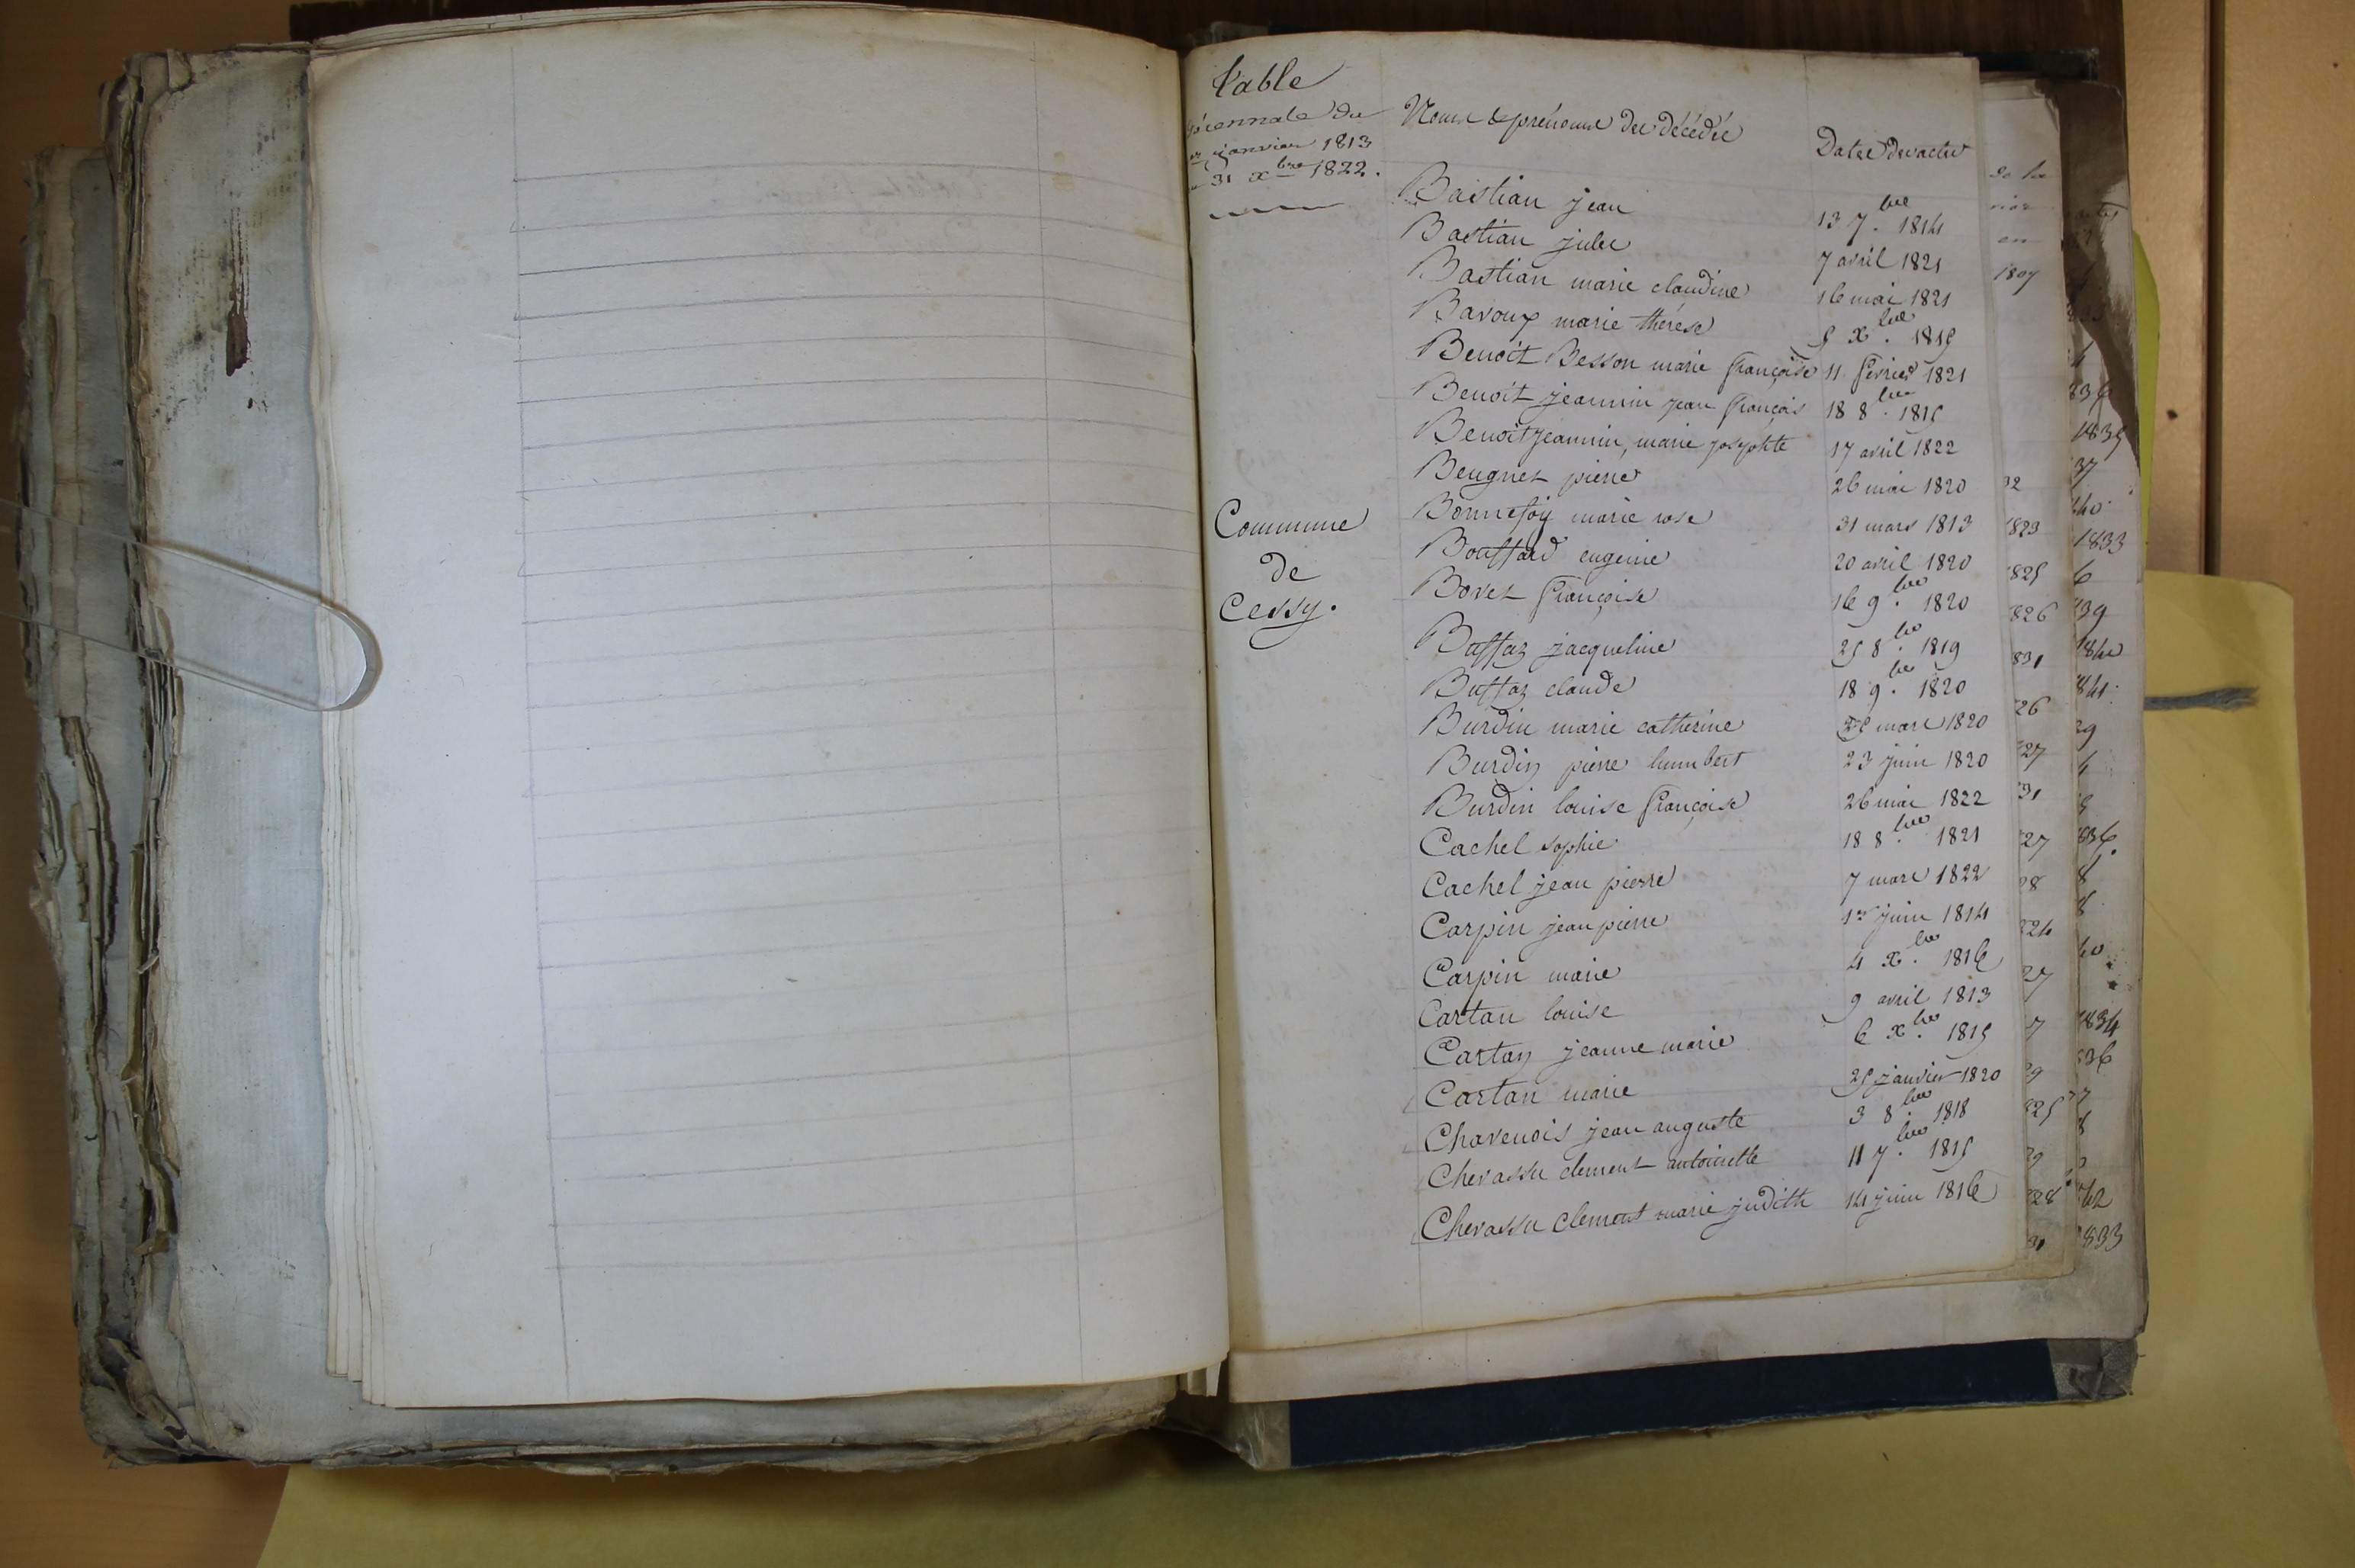 Table
décennale du
1er janvier 1813
au 31 xbre 1822.
Commune
de
Cessy.
Noms & prénoms des décédés Dates des actes
Bastian jean 13 7.bre 1814
Bastian jules 7 avril 1821
Bastian marie claudine 16 mai 1821
Bavoux marie thérèse 5 x.bre 1815
Benoit Besson marie françoise 11 février 1821
Benoit jeannin jean françois 18 8.bre 1815
Benoit jeannin, marie josephte 17 avril 1822
Beugnet pierre 26 mai 1820
Bonnefoy marie rose 31 mars 1813
Bouffard eugenie 20 avril 1820
Bovet françoise 16 9.bre 1820
Buffaz jacqueline 25 8.bre 1819
Buffaz claude 18 9.bre 1820
Burdin marie catherine 25 mars 1820
Burdin pierre humbert 23 juin 1820
Burdin louise françoise 26 mai 1822
Cachel sophie 18 8.bre 1821
Cachel jean pierre 7 mars 1822
Carpin jean pierre 1er juin 1814
Carpin marie 4 x.bre 1816
Cartan louise 9 avril 1813
Cartan jeanne marie 6 x.bre 1815
Cartan marie 25 janvier 1820
Chavenois jean auguste 3 8.bre 1818
Chevassu clement antoinette 11 7.bre 1815
Chevassu clement marie judith 14 juin 1816